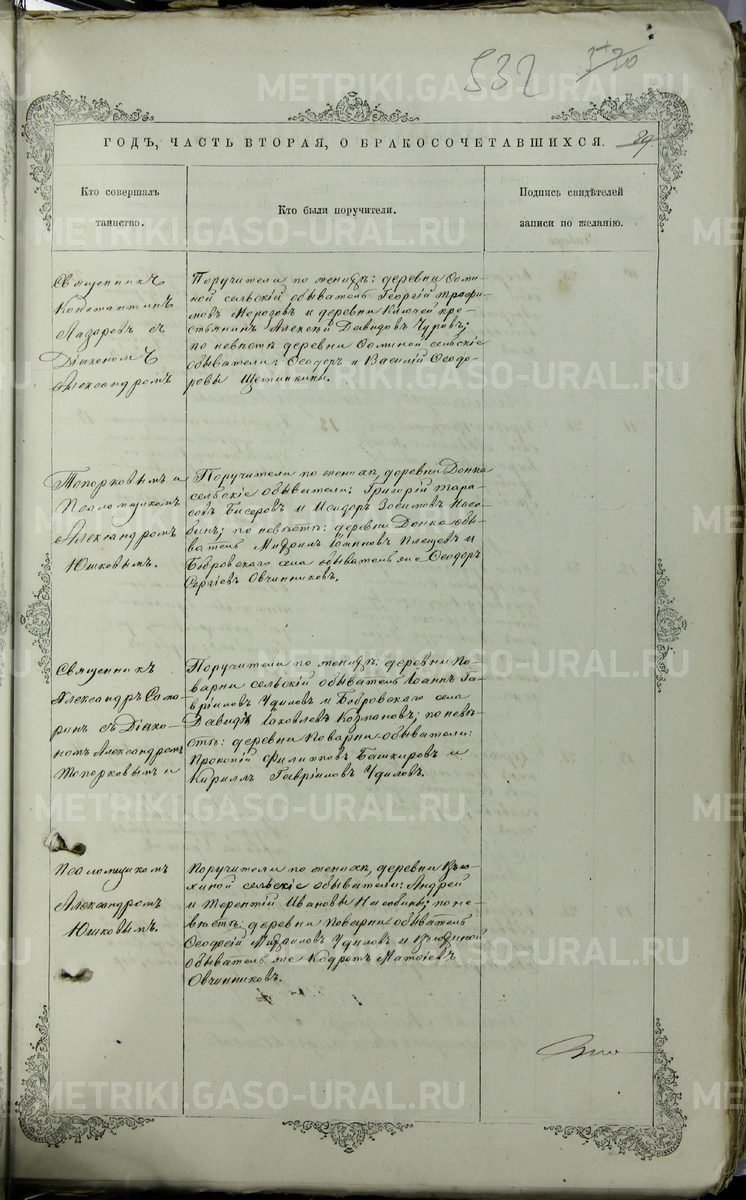 532
ГОДЪ, ЧАСТЬ ВТОРАЯ, О БРАКОСОЧЕТАВШИХСЯ.
89
Кто совершалъ
таинство.
Кто были поручители.
Подпись свидѣтелей
записи по желанію.
Священникъ
Константинъ
Лазаревъ съ
Діакономъ
Александромъ
Поручители по женихѣ: деревни Соми-
ной сельскій обыватель Георгій Трофи-
мовъ Морозовъ и деревни Ключей кре-
стьянинъ Алексѣй Давидовъ Чуровъ;
по невѣстѣ деревни Соминой сельскіе
обыватели: Ѳеодоръ и Василій Ѳеодо-
ровы Щетинкины.
Топорковымъ и
Псаломщикомъ
Александромъ
Юшковымъ.
Поручители по женихѣ, деревни Донка
сельскіе обыватели: Григорій Тара-
совъ Бисеровъ и Исидоръ Насо-
бинъ; по невѣстѣ: деревни Донка обы-
ватель Іоанновъ Плещевъ и
Бобровскаго села обыватель же Ѳеодоръ
Сергіевъ Овчинниковъ.
Священникъ
Александръ Само-
ринъ съ Діако-
номъ Александромъ
Топорковымъ и
Поручители по женихѣ: деревни По-
варни сельскій обыватель Іоаннъ Га-
вріиловъ Удиловъ и Бобровскаго села
Давидъ Іаковлевъ Козмановъ; по невѣ-
стѣ: деревни Поварни обыватели:
Прокопій Филипповъ Башкировъ и
Кириллъ Гавріиловъ Удиловъ.
Псаломщикомъ
Александромъ
Юшковымъ.
Поручители по женихѣ, деревни Вью-
хиной сельскіе обыватели: Андрей
и Терентій Ивановы Насобины; по не-
вѣстѣ: деревни Поварни обыватель
Ѳеодосій Михаиловъ Удиловъ и Вьюхиной
обыватель же Кодратъ Матѳіевъ
Овчинниковъ.
METRIKI.GASO-URAL.RU